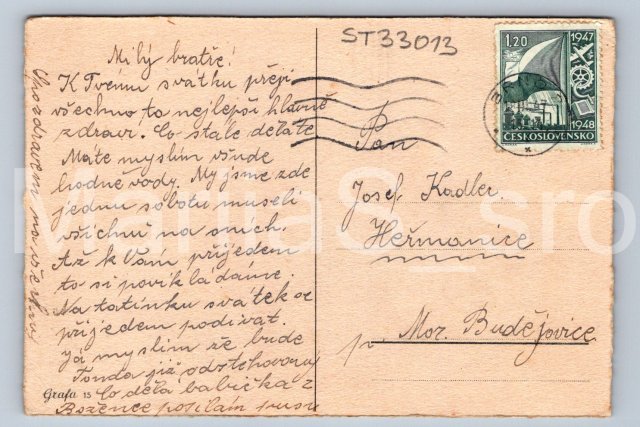 ST33013
Milý bratře!
K Tvému svátku přeji
všechno to nejlepší hlavně
zdraví. Co stále děláte
Máte myslím všude
hodně vody. My jsme zde
jednu sobotu museli
všichni na
Až k Vám přijedem
to si povikládáme.
Na tatínku svátek se
přijedem podívat.
Já myslím že bude
Tonda již odstehovaný
Co dělá babička z
Božence posílám pusu
Pozdravem na
Grafa 15
1.20
1947
1948
ČESKOSLOVENSKO
Pan
Josef Kadler
Heřmanice
p. Mor. Budějovice